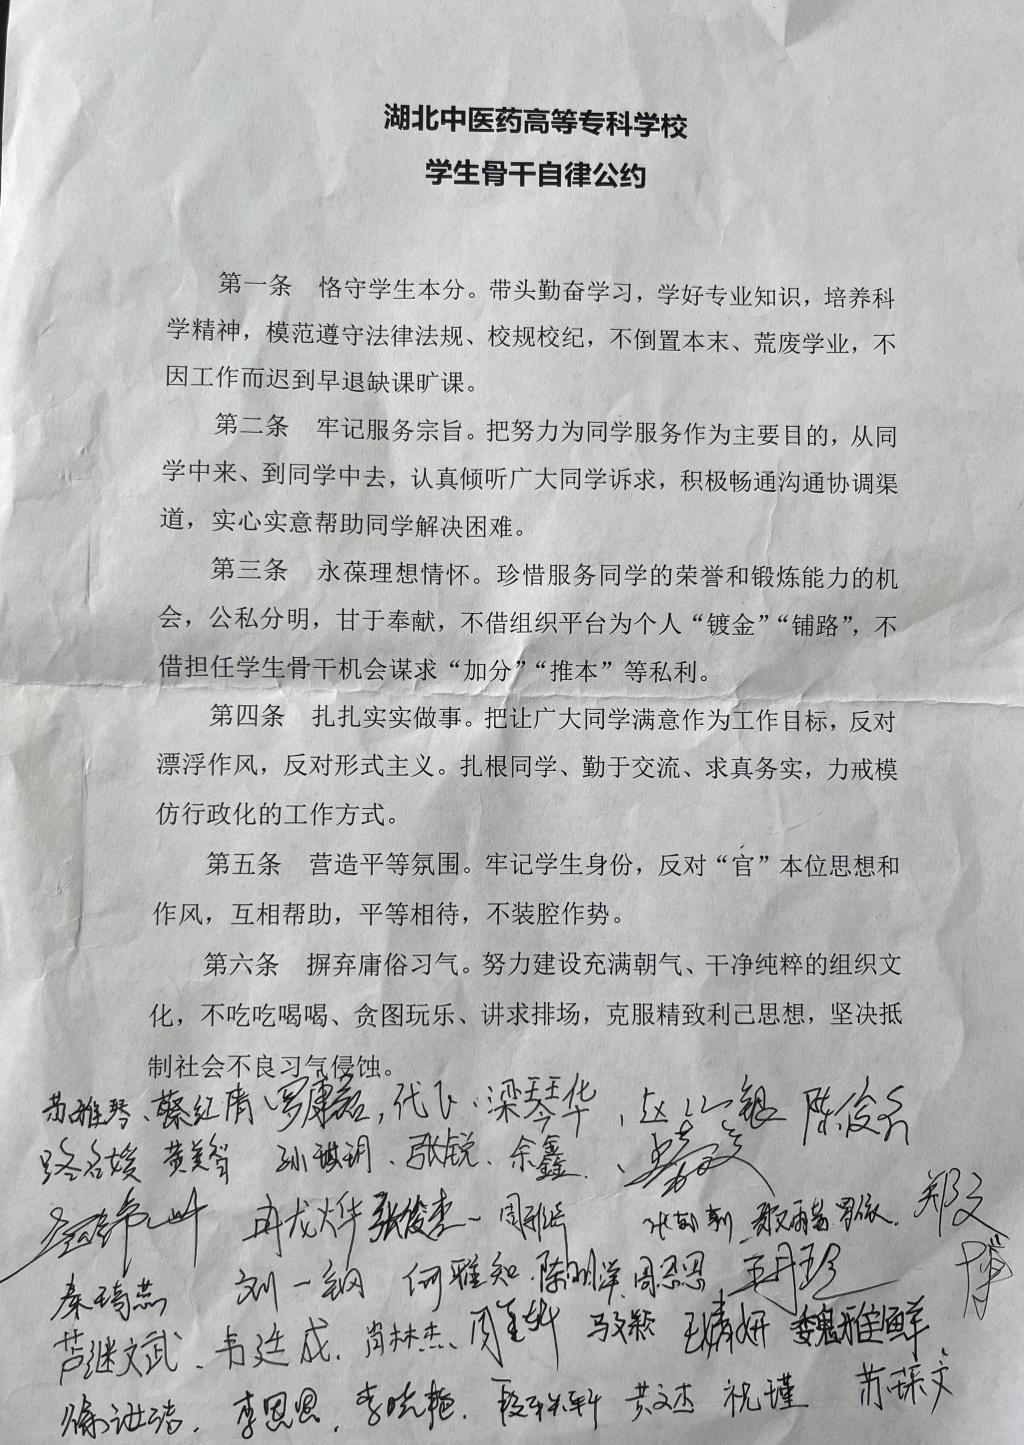 湖北中医药高等专科学校
学生骨干自律公约
第一条 恪守学生本分。带头勤奋学习，学好专业知识，培养科
学精神，模范遵守法律法规、校规校纪，不倒置本末、荒废学业，不
因工作而迟到早退缺课旷课。
第二条 牢记服务宗旨。把努力为同学服务作为主要目的，从同
学中来、到同学中去，认真倾听广大同学诉求，积极畅通沟通协调渠
道，实心实意帮助同学解决困难。
第三条 永葆理想情怀。珍惜服务同学的荣誉和锻炼能力的机
会，公私分明，甘于奉献，不借组织平台为个人“镀金”“铺路”，不
借担任学生骨干机会谋求“加分”“推本”等私利。
第四条 扎扎实实做事。把让广大同学满意作为工作目标，反对
漂浮作风，反对形式主义。扎根同学、勤于交流、求真务实，力戒模
仿行政化的工作方式。
第五条 营造平等氛围。牢记学生身份，反对“官”本位思想和
作风，互相帮助，平等相待，不装腔作势。
第六条 摒弃庸俗习气。努力建设充满朝气、干净纯粹的组织文
化，不吃吃喝喝、贪图玩乐、讲求排场，克服精致利己思想，坚决抵
制社会不良习气侵蚀。
苏雅琴、蔡红倩、代飞、梁琴华、陈俊名
路名媛 孙琪玥、张锐、余鑫
冉龙烨 张俊杰 罗依 郑文博
秦琦燕 刘一钢 何雅知 陈明洋 周恩恩
韦廷成 肖林杰 马文颖 王婧妍 魏雅鲜
李恩恩 李晓艳 黄文杰 祝瑾 苏琛文